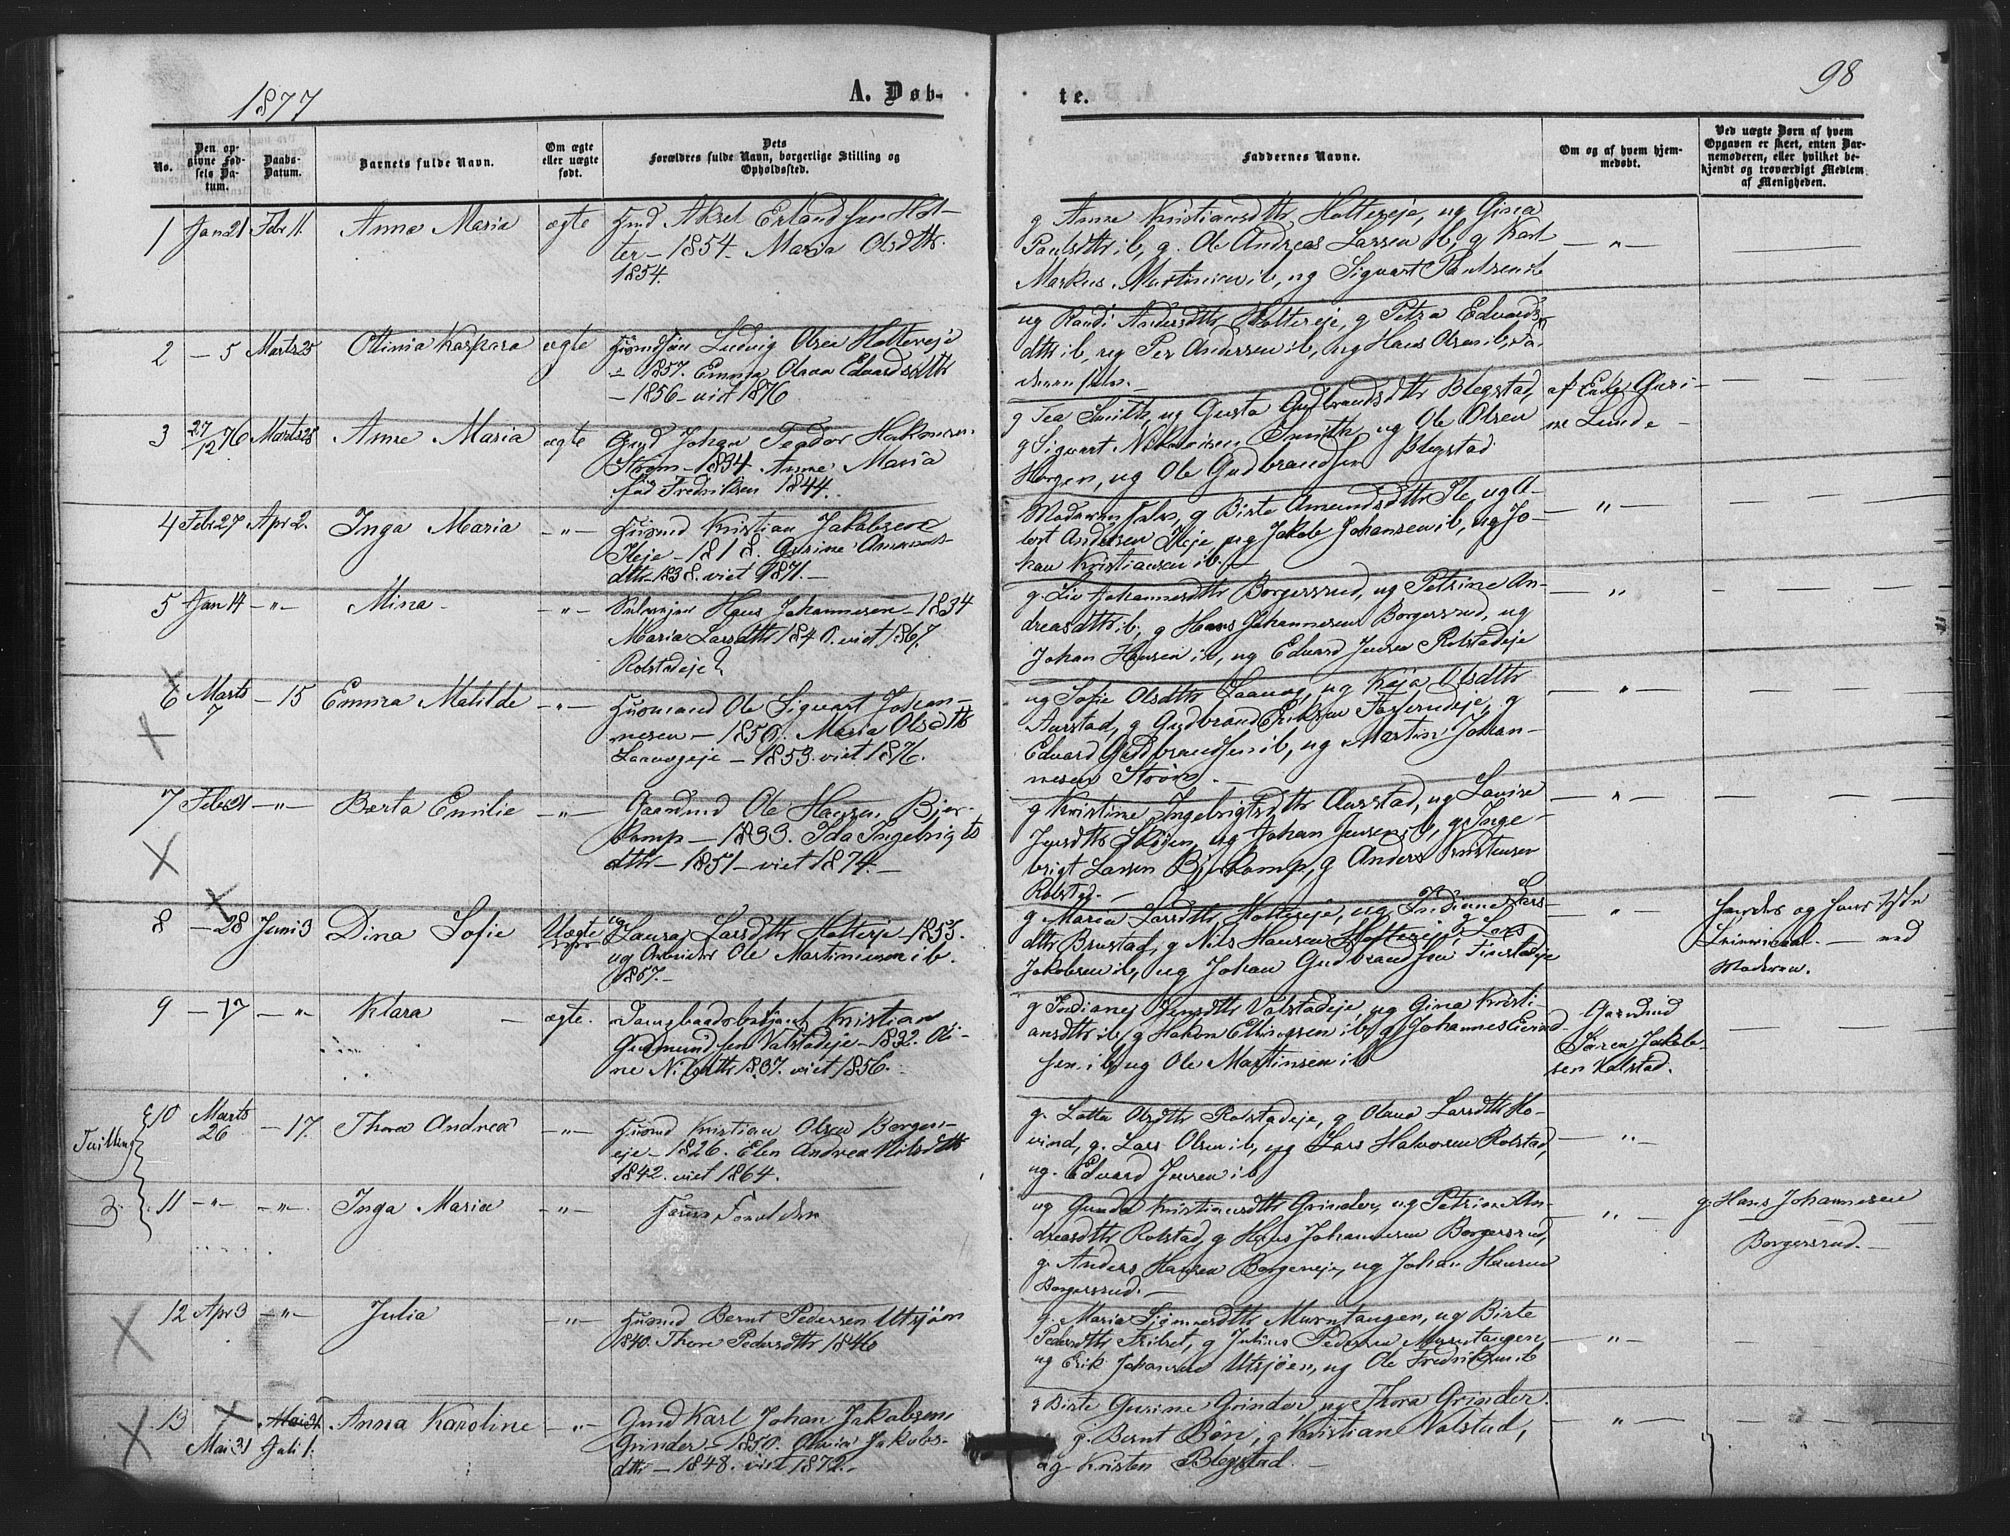 1877
A. Døb-
te.
98
No.
Den op-
givne Fød-
sels Da-
tum.
Daabs-
Datum.
Barnets fulde Navn.
Om ægte
eller uægte
født.
Dets
Forældres fulde Navn, borgerlige Stilling og
Opholdssted.
Faddernes Navne.
Om og af hvem hjem-
medøbt.
Ved uægte Børn af hvem
Opgaven er skeet, enten Bar-
nemoderen, eller hvilket be-
kjendt og troværdigt Medlem
af Menigheden.
1 Jan 21 Febr 11. Anne Maria ægte Gmd Aksel Erlandsen Hol-
ter - 1854. Maria Olsdtr.
1854.
g Anne Kristiansdtr Holtereje, ug Gina
Paulsdtr ib, g. Ole Andreas Larsen ib, g Karl
Markus Martinsen ib, ug Sigvart Paulsen ib
— " —
2 — 5 Marts 25 Otinia Kaspara ægte Husmd Ludvig Olsen Holtereje
- 1857. Emma Olava Edvardsdtr
- 1856 - viet 1876
ug Randi Andersdtr Holtereje, g Petra Edvards-
dtr ib, ug Per Andersen ib, ug Hans Olsen ib, Fa-
deren selv. —
3 27/12 76 Marts 25 Anne Maria ægte Gmd Johan Teodor Hakonsen
Strøm - 1834. Anne Maria
fød Fredriksen 1844.
g Tea Smith, ug Gusta Gudbrandsdtr Blegstad,
g Sigvart Nikolaisen Smith, ug Ole Olsen
Horgen, ug Ole Gudbrandsen Blegstad
af Enke Guri-
ne Lunde —
4 Febr 27 Apr 2. Inga Maria — " — Husmd Kristian Jakobsen
Ileje - 1818. Gurine Amunds-
dtr - 1838. viet 1871. —
Moderen selv, g Birte Amundsdtr Ile, ug A-
lert Andersen Ileje, ug Jakob Johansen ib, ug Jo-
han Kristiansen ib. —
— " —
5 Jan 14 — " — Mina — " — Selvejer Hans Johannesen - 1834
Maria Larsdtr 1840. viet 1867.
Rolstadeje?
g. Liv Johannesdtr Borgersrud, ug Petrine An-
dreasdtr ib, g Hans Johannesen Borgersrud, ug
Johan Hansen ib, ug Edvard Jensen Rolstadeje
— " —
6 Marts
7 — 15 Emma Matilde — " — Husmand Ole Sigvart Johan-
nesen - 1850. Maria Olsdtr
Laavogeje - 1853. viet 1876.
ug Sofie Olsdtr Laavog, ug Kaja Olsdtr
Aurstad, g Gudbrand Eriksen Fosserudeje, g
Edvard Gudbrandsen ib, ug Martin Johan-
nesen Strøm. —
— " —
7 Febr 21 — " — Berta Emilie — " — Gaardmd Ole Hansen Bjer-
kamp - 1833. Ida Ingebrigts
dtr - 1851 - viet 1874. —
g Kristine Ingebrigtsdtr Aurstad, ug Lovise
Jensdtr Skøien, ug Johan Jensen ib, g Inge-
brigt Larsen Bjerkamp, g Anders Kristensen
Rolstad. —
— " —
8 — 28 Juni 3 Dina Sofie Uægte ug Laura Larsdtr Holtereje 1853.
ug Arbeider Ole Martinsen ib.
1857. —
g Maria Larsdtr Holtereje, ug Indiane Lars-
dtr Brustad, g Nils Hansen Holtereje, g Lars
Jakobsen ib, ug Johan Gudbrandsen Finstadeje
— " —
Moderen.
9 — 17 — " — Klara — ægte. Jernbanebetjent Kristian
Gudmundsen Valstadeje - 1832. Oli-
ne Nilsdtr 1837. viet 1856. —
g Indiane Jensdtr Valstadeje, ug Gina Kristi-
ansdtr ib, g Hakon Ellingsen ib, g Johannes Eivind-
sen ib, ug Ole Martinsen ib
Gaardmd
Søren Jakob-
sen Valstad.
Tvilling
10 Marts
26 — 17. Thora Andrea — " — Husmd Kristian Olsen Borgen-
eje - 1826. Elen Andrea Nilsdtr
1842. viet 1864.
g. Lotta Olsdtr Rolstadeje, g Olava Larsdtr Ho-
vind, g. Lars Olsen ib, ug Lars Hakonsen Rolstad,
ug. Edvard Jensen ib
— " —
11 — " — — " — Inga Maria — " — Samme Forældre
ug Gunda Kristiansdtr Grinder, ug Petrine An-
dreasdtr Rolstad, g Hans Johannesen Borgersrud,
g. Anders Hansen Borgeneje, ug Johan Hansen
Borgersrud. —
— " —
g. Hans Johannesen
Borgersrud. —
12 Apr 3 — " — Julia — " — Husmd Bernt Pedersen Utsjøen
1840. Thore Pedersdtr 1846
g. Maria Simensdtr Murutangen, ug Birte
Pedersdtr Frilset, g Julius Pedersen Murutangen,
ug Erik Johansen Utsjøen, ug Ole Fredriksen ib
— " —
13 Mai 31 Juli 1. Anna Karoline — " — Gmd Karl Johan Jakobsen
Grinder - 1850. Olivia Jakobs-
dtr - 1848. viet 1872. —
g Birte Gurine Grinder ug Thora Grinder.
g. Bernt Bøn, g Kristian Valstad,
ug. Kristen Blegstad. —
— " —